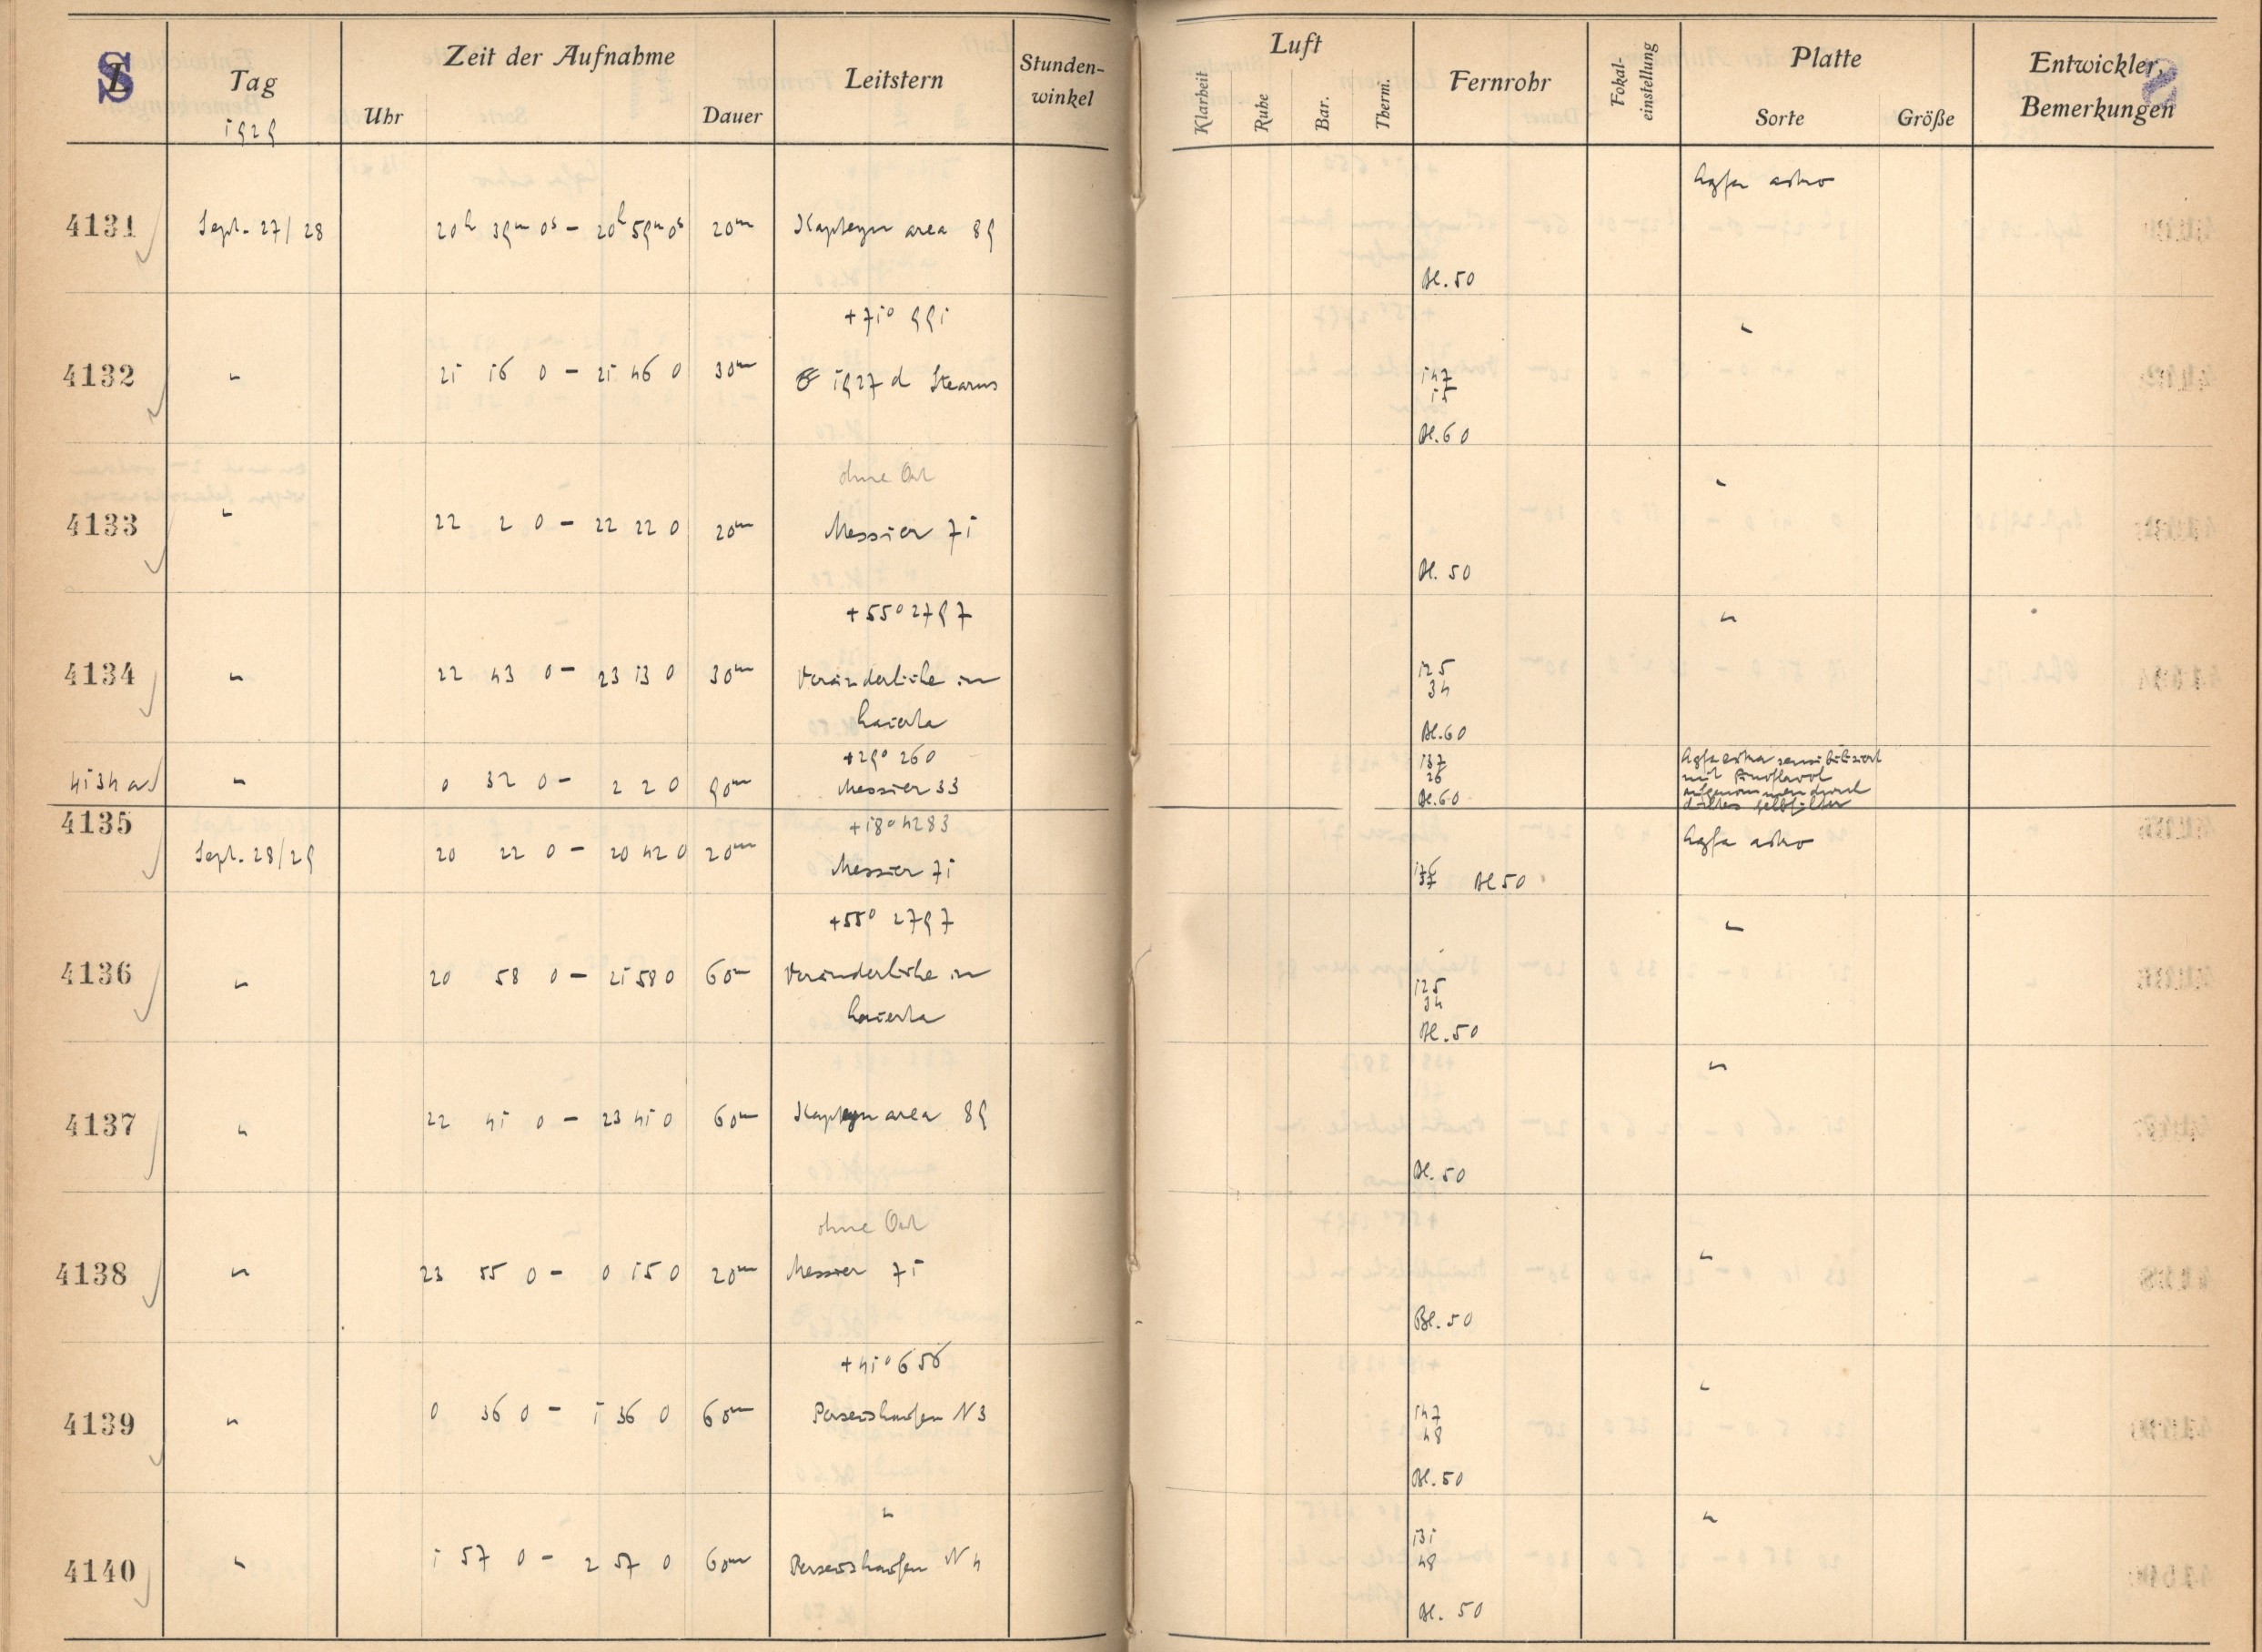 S
Tag
1929
Zeit der Aufnahme
Uhr
Dauer
Leitstern
Stunden-
winkel
Luft
Klarheit
Ruhe
Bar.
Therm.
Fernrohr
Fokal-
einstellung
Platte
Sorte
Größe
Entwickler,
Bemerkungen
S
Agfa astro
4131 Sept. 27/28 20h 39m 0s - 20h 59m 0s 20m Kapteyn area 89
Bl. 50
+71° 991 "
4132 " 21 16 0 - 21 46 0 30m 1927 d Stearns 147
15
Bl. 60
ohne Ort "
4133 " 22 2 0 - 22 22 0 20m Messier 71
Bl. 50
+55° 2797 "
4134 " 22 43 0 - 23 13 0 30m Veränderliche in 125
34
Lacerta Bl. 60
+29° 260 137 Agfa astro sensibilisiert
4134a " 0 32 0 - 2 2 0 90m Messier 33 26 mit Pinoflavol
Bl. 60 aufgenommen durch
dichtes Gelbfilter
4135 +18° 4283 Agfa astro
Sept. 28/29 20 22 0 - 20 42 0 20m Messier 71 37 Bl 50
+55° 2797 "
4136 " 20 58 0 - 21 58 0 60m Veränderliche in 125
34
Lacerta Bl. 50
"
4137 " 22 41 0 - 23 41 0 60m Kapteyn area 89
Bl. 50
ohne Ort "
4138 " 23 55 0 - 0 15 0 20m Messier 71
Bl. 50
+41° 656 "
4139 " 0 36 0 - 1 36 0 60m Perseushaufen N 3 147
48
Bl. 50
" "
4140 " 1 57 0 - 2 57 0 60m Perseushaufen N 4 131
48
Bl. 50